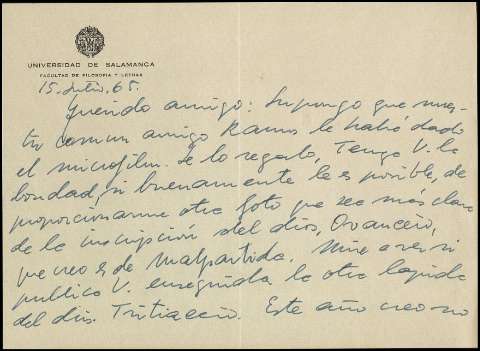 UNIVERSIDAD DE SALAMANCA
FACULTAD DE FILOSOFIA Y LETRAS
15. Julio, 65.
Querido amigo: Supongo que nues-
tro común amigo Ramos le habrá dado
el microfilm. Se lo regalo, Tenga V. la
bondad, si buenamente le es posible, de
proporcionarme otra foto que sea más clara
de la inscripción del dios,
que creo es de Malpartida. Mire a ver si
publica V. enseguida la otra lápida
del dios. Este año creo no